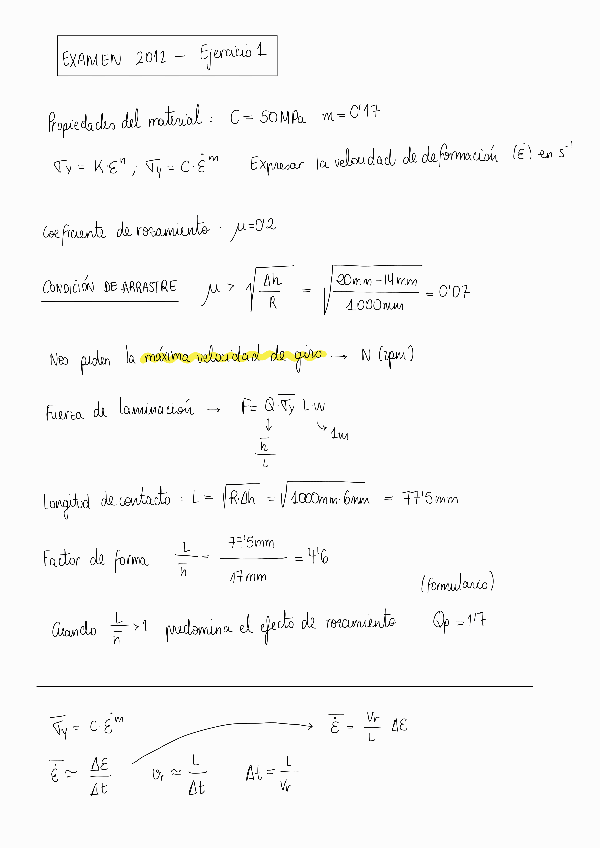 EXAMEN 2012 - Ejercicio 1
Propiedades del material: C = 50 MPa m = 0'17
σ̅y = K·ε^n ; σ̅y = C·ε̇^m Expresar la velocidad de deformación (ε̇) en s⁻¹
Coeficiente de rozamiento. μ=0'2
CONDICIÓN DE ARRASTRE μ > √(Δh/R) = √((20mm-14mm)/1000mm) = 0'07
Nos piden la máxima velocidad de giro → N (rpm)
Fuerza de laminación → F = Q·σ̅y L w
↓ h̅/L ↘ 1m
Longitud de contacto: L = √(R·Δh) = √(1000mm·6mm) = 77'5mm
Factor de forma L/h̅ = 77'5mm/17mm = 4'6
(formulario)
Cuando L/h̅ >1 predomina el efecto de rozamiento Qp = 1'7
σ̅y = C ε̇^m → ε̇̅ = Vr/L Δε
ε̇̅ ≃ Δε/Δt vr ≃ L/Δt Δt = L/Vr